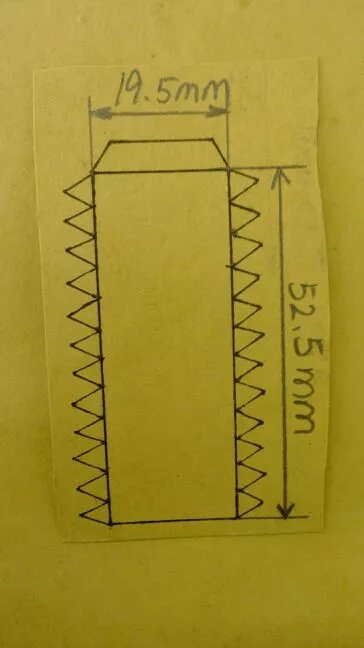 19.5mm
52.5mm